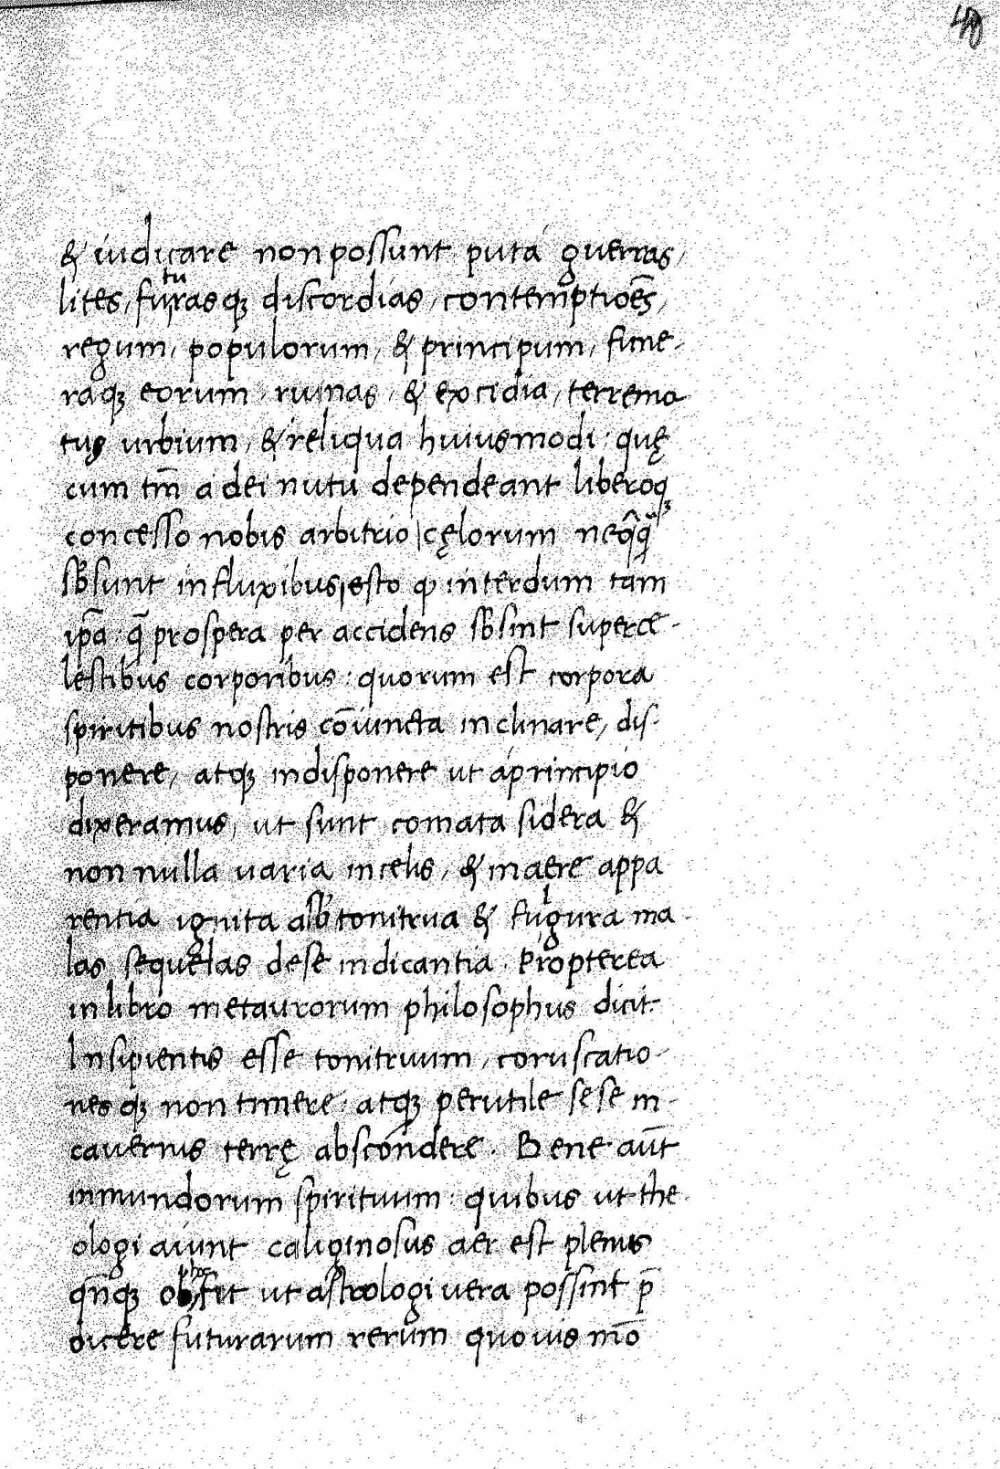 40
& iudicare non possunt puta guerras,
lites, futurasqꝫ discordias, contem̄ptioēs,
regum, populorum, & principum, fune-
raqꝫ eorum, ruinas, & excidia, terremo
tus urbium, & reliqua huiusmodi: quę
cum tm̄ a dei nutu dependeant liberoqꝫ
concesso nobis arbitrio, cęlorum neq̄q̄
sb̄sunt influxibus, esto ꝙ interdum tam
ip̄a q̄ prospera per accidens sb̄sint superce-
lestibus corporibus: quorum est corpora
spiritibus nostris cōiuncta inclinare, dis-
ponere, atqꝫ indisponere ut a principio
dixeramus, ut sunt comata sidera &
non nulla uaria in celis, & in aere appa
rentia ignita a sb̄ tonitrua & fulgura ma-
las sequelas de se indicantia. Propterea
in libro metaurorum philosophus dicit.
Insipientis esse tonitruum, coruscatio-
nesqꝫ non timere: atqꝫ perutile sese in-
cauernis terrę abscondere. Bene aūt
inmundorum spirituum: quibus ut the-
ologi aiunt caliginosus aer est plenus
qn̄qꝫ ob hoc fit ut astrologi uera possint p̄
dicere futurarum rerum quouis mō